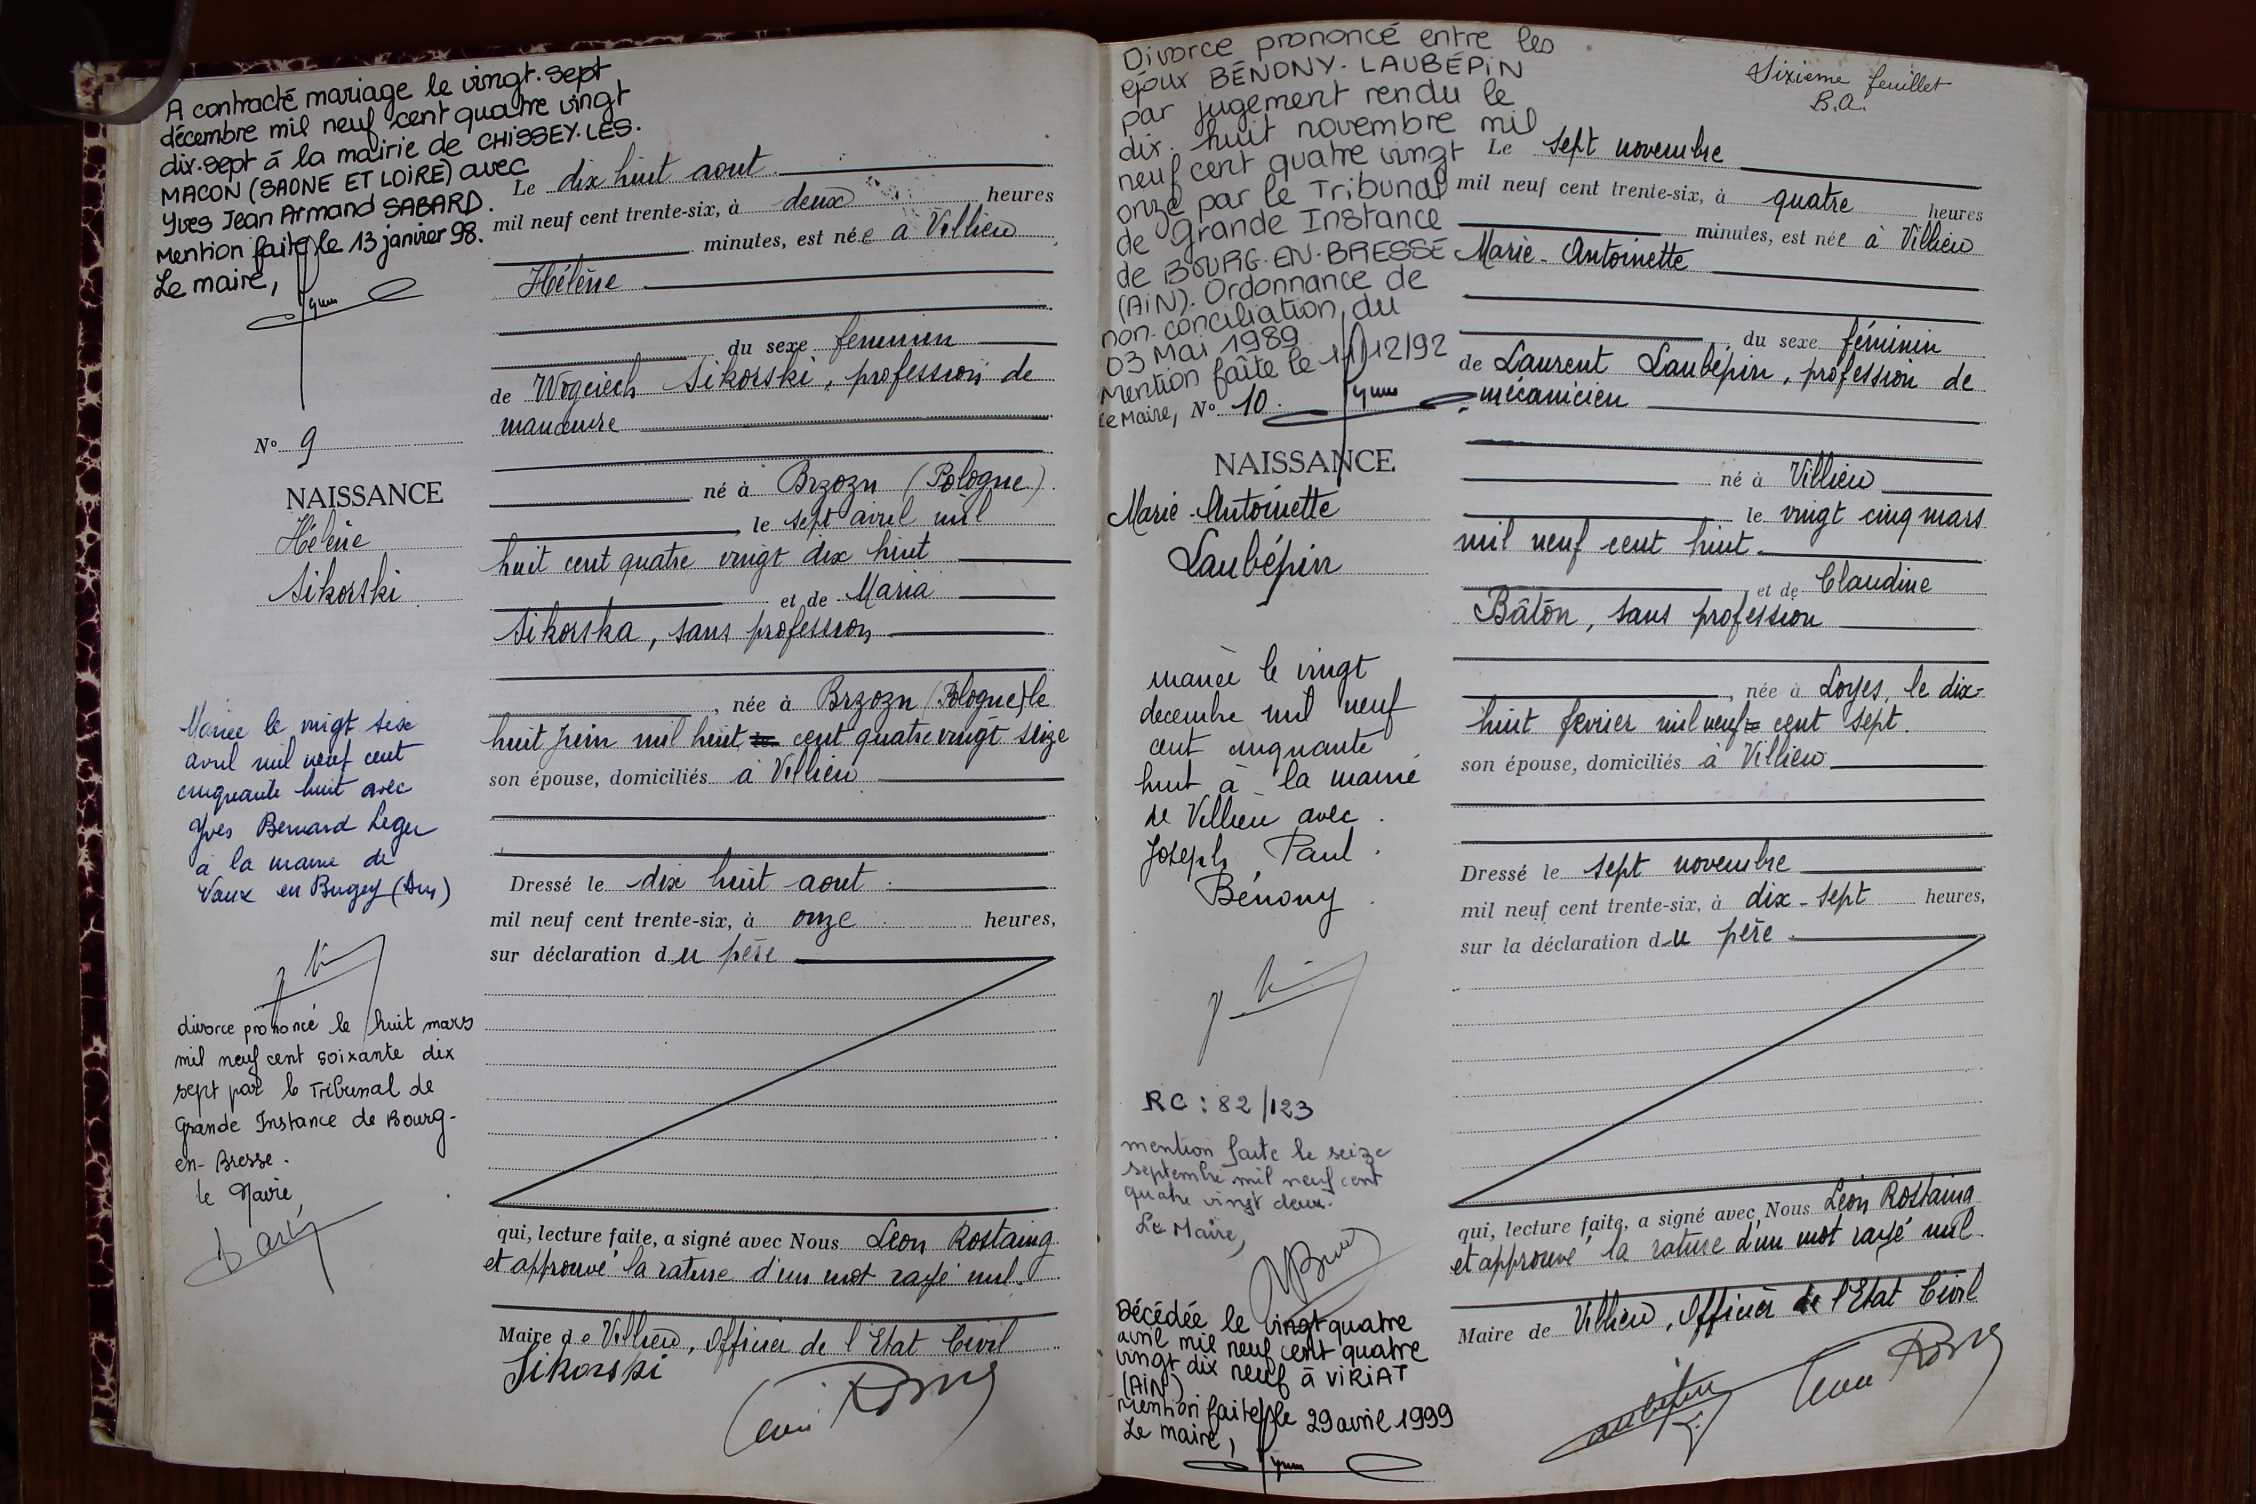 A contracté mariage le vingt.sept
décembre mil neuf cent quatre vingt
dix.sept à la mairie de CHISSEY.LES.
MACON (SAONE ET LOIRE) avec
Yves Jean Armand SABARD.
Mention faite le 13 janvier 98.
Le maire,
N° 9
NAISSANCE
Hélène
Sikorski
Mariée le vingt six
avril mil neuf cent
cinquante huit avec
Yves Bernard Leger
à la mairie de
Vaux en Bugey (Ain)
divorce prononcé le huit mars
mil neuf cent soixante dix
sept par le Tribunal de
Grande Instance de Bourg-
en-Bresse.
le Maire
Le dix huit aout
mil neuf cent trente-six, à deux heures
minutes, est née à Villieu
Hélène
du sexe feminin
de Wogciech Sikorski, profession de
manœuvre
né à Brzozn (Pologne)
, le sept avril mil
huit cent quatre vingt dix huit
et de Maria
Sikorska, sans profession
, née à Brzozn (Pologne) le
huit juin mil huit cent quatre vingt seize
son épouse, domiciliés à Villieu
Dressé le dix huit aout
mil neuf cent trente-six, à onze heures,
sur déclaration du père
qui, lecture faite, a signé avec Nous Léon Rostaing
et approuvé la rature d'un mot rayé nul.
Maire de Villieu, Officier de l'Etat Civil
Sikorski
Sixième feuillet
B.A.
Divorce prononcé entre les
époux BÉNONY. LAUBÉPIN
par jugement rendu le
dix. huit novembre mil
neuf cent quatre vingt
onze par le Tribunal
de Grande Instance
de BOURG.EN.BRESSE
(AIN). Ordonnance de
non.conciliation du
03 Mai 1989
Mention faîte le 11/12/92
Le Maire, N° 10
NAISSANCE
Marie-Antoinette
Laubépin
mariée le vingt
decembre mil neuf
cent cinquante
huit à la mairie
de Villieu avec
Joseph Paul
Bénony
RC : 82/123
mention faite le seize
septembre mil neuf cent
quatre vingt deux.
Le Maire,
Décédée le vingt quatre
avril mil neuf cent quatre
vingt dix neuf à VIRIAT
(AIN)
Mention faite le 29 avril 1999
Le maire,
Le sept novembre
mil neuf cent trente-six, à quatre heures
minutes, est née à Villieu
Marie-Antoinette
du sexe féminin
de Laurent Laubépin, profession de
mécanicien
né à Villieu
le vingt cinq mars
mil neuf cent huit
et de Claudine
Bâton, sans profession
, née à Loyes, le dix-
huit fevrier mil neuf cent sept.
son épouse, domiciliés à Villieu
Dressé le sept novembre
mil neuf cent trente-six, à dix-sept heures,
sur la déclaration du père
qui, lecture faite, a signé avec Nous Léon Rostaing
et approuvé la rature d'un mot rayé nul.
Maire de Villieu, Officier de l'Etat Civil